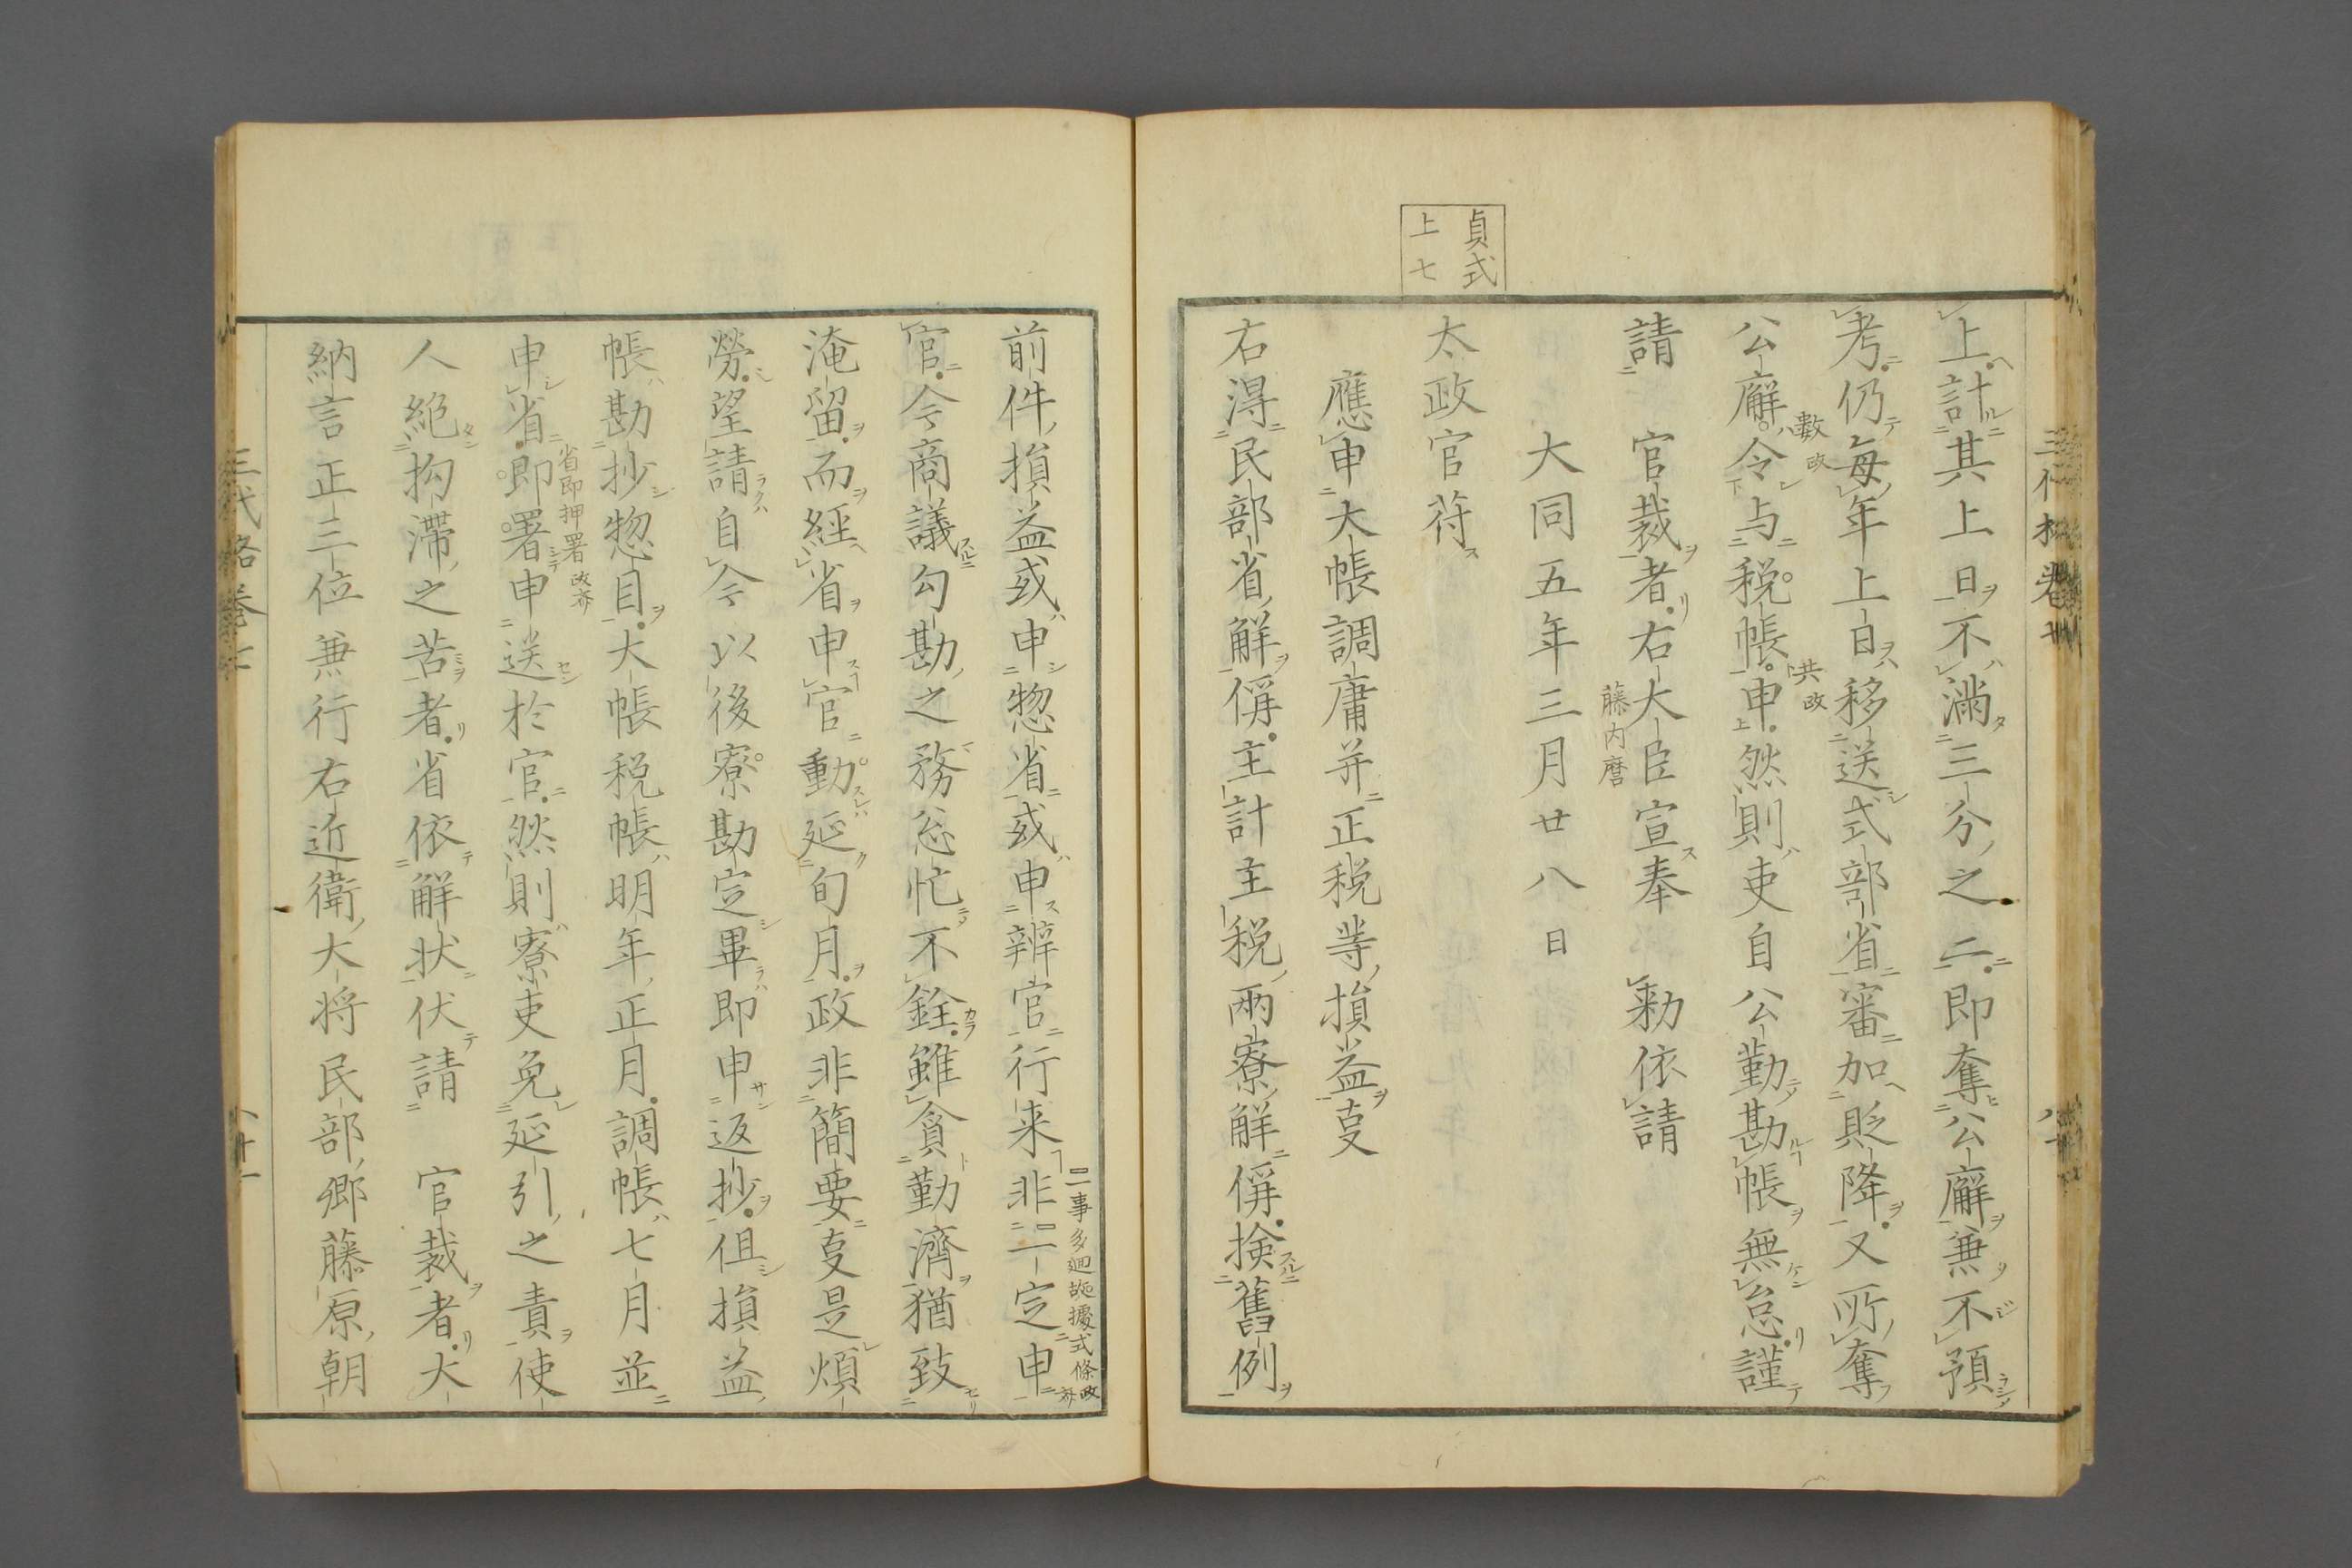 貞式
上七
上計其上日不満三分之二即奪公廨兼不預
考仍毎年上日移送式部省審加貶降又所奪
公廨令与税帳申然則吏自公勤勘帳無怠謹
數政
共政
請 官裁者右大臣宣奉 勅依請
藤内麿
大同五年三月廿八日
太政官符
應申大帳調庸并正税等損益亊
右得民部省解偁主計主税兩寮解偁検舊例
前件損益或申惣省或申辨官行来非一二定申
事多廻
據式條政
官今商議勾勘之務怱忙不銓雖貪勤濟猶致
淹留而経省申官動延旬月政非簡要亊是煩
勞望請自今以後寮勘定畢即申返抄但損益
帳勘抄惣目大帳税帳明年正月調帳七月並
申省即署申送於官然則寮吏免延引之責使
省即押署政亦
人絶拘滞之苦者省依解状伏請 官裁者大
納言正三位兼行右近衛大将民部卿藤原朝
三代格巻七